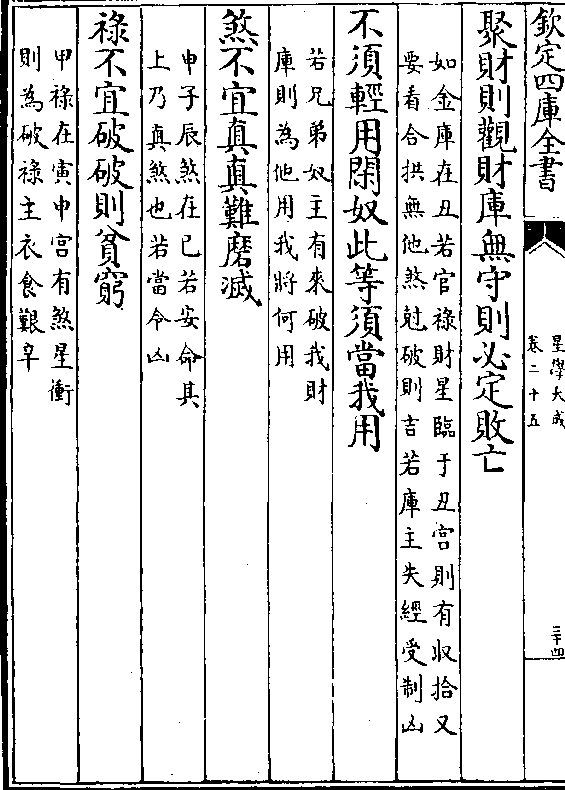 欽定四庫全書
星學大成
卷二十五
三十四
聚財則觀財庫無守則必定敗亡
如金庫在丑若官祿財星臨于丑宮則有収拾又
要看合拱無他煞尅破則吉若庫主失經受制凶
不須輕用閑奴此等須當我用
若兄弟奴主有來破我財
庫則為他用我將何用
煞不宜真真難磨滅
申子辰煞在已若安命其
上乃真煞也若當令凶
祿不宜破破則貧窮
甲祿在寅申宮有煞星衝
則為破祿主衣食艱辛